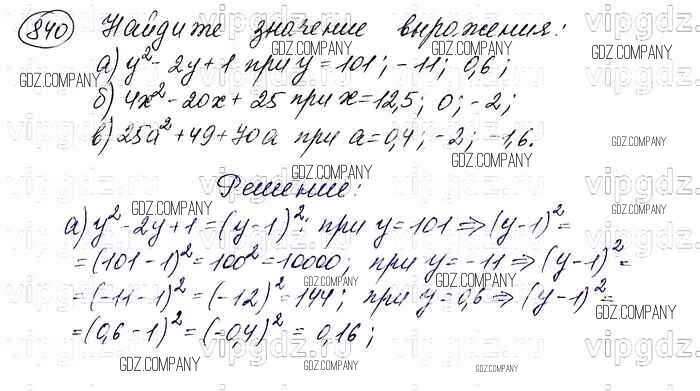 840 Найдите значение выражения:
а) y² - 2y + 1 при y = 101; -11; 0,6;
б) 4x² - 20x + 25 при x = 12,5; 0; -2;
в) 25a² + 49 + 70a при a = 0,4; -2; -1,6.
Решение:
а) y² - 2y + 1 = (y - 1)²; при y = 101 ⇒ (y - 1)² =
= (101 - 1)² = 100² = 10000; при y = -11 ⇒ (y - 1)² =
= (-11 - 1)² = (-12)² = 144; при y = 0,6 ⇒ (y - 1)² =
= (0,6 - 1)² = (-0,4)² = 0,16;
GDZ.COMPANY
vipgdz.com